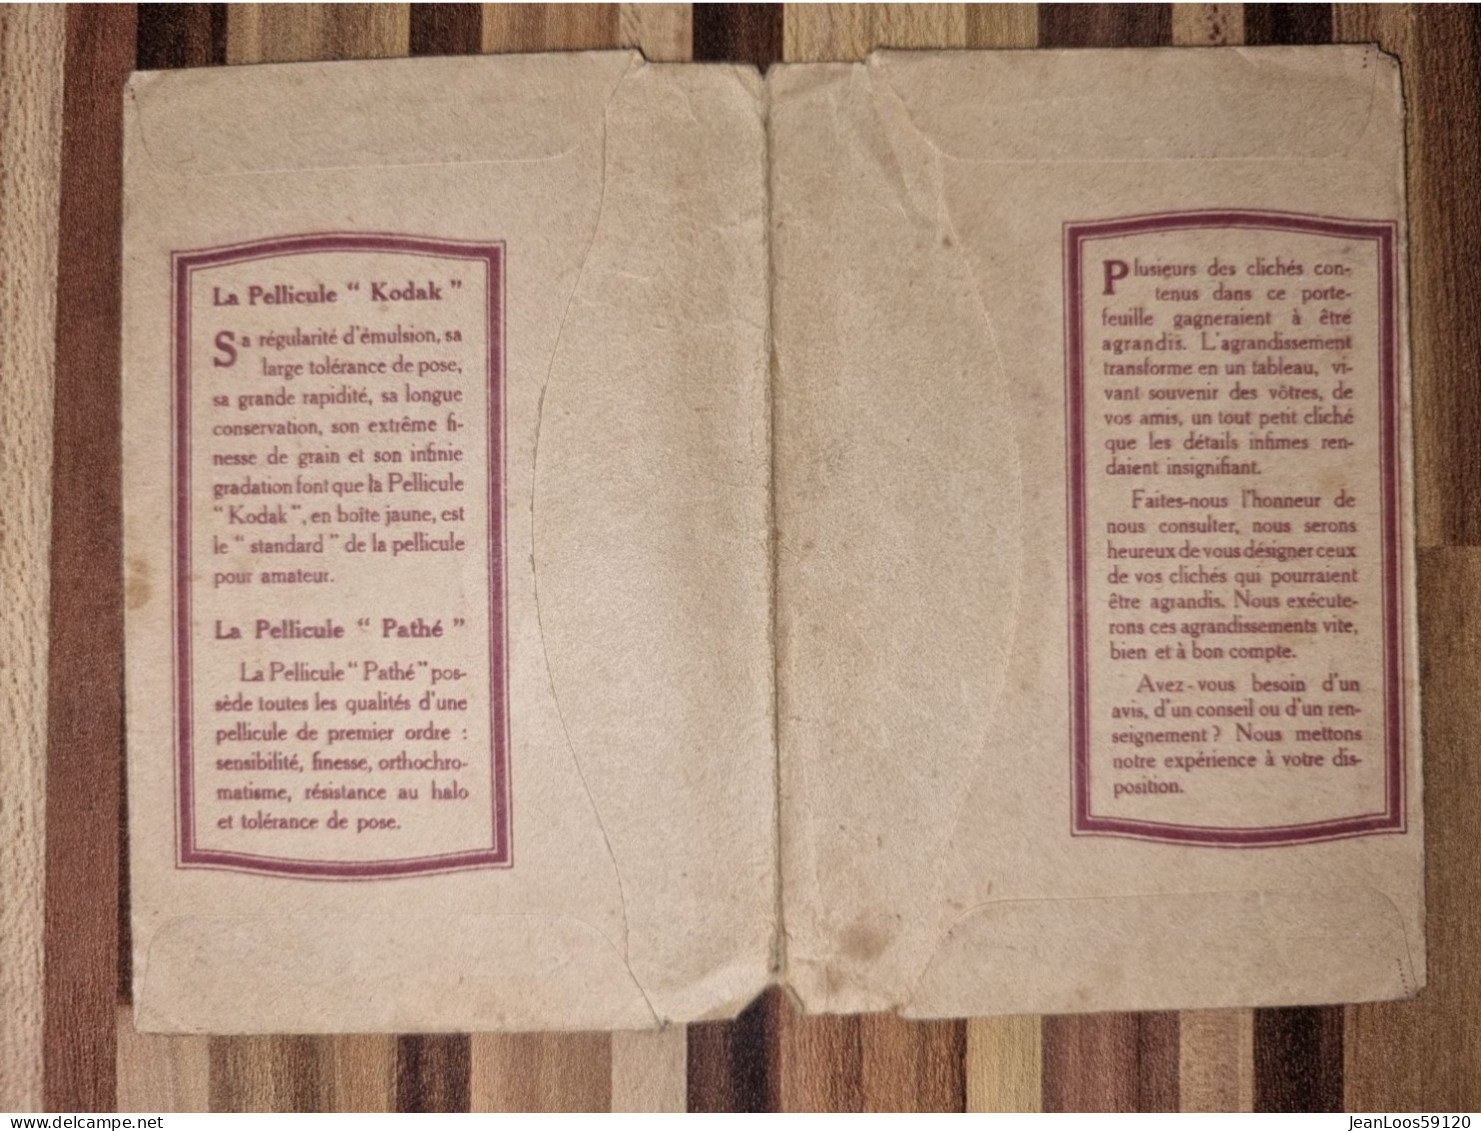 La Pellicule “ Kodak ”
Sa régularité d'émulsion, sa
large tolérance de pose,
sa grande rapidité, sa longue
conservation, son extrême fi-
nesse de grain et son infinie
gradation font que la Pellicule
“ Kodak ”, en boîte jaune, est
le “ standard ” de la pellicule
pour amateur.
La Pellicule “ Pathé ”
La Pellicule “ Pathé ” pos-
sède toutes les qualités d'une
pellicule de premier ordre :
sensibilité, finesse, orthochro-
matisme, résistance au halo
et tolérance de pose.
Plusieurs des clichés con-
tenus dans ce porte-
feuille gagneraient à être
agrandis. L'agrandissement
transforme en un tableau, vi-
vant souvenir des vôtres, de
vos amis, un tout petit cliché
que les détails infimes ren-
daient insignifiant.
Faites-nous l'honneur de
nous consulter, nous serons
heureux de vous désigner ceux
de vos clichés qui pourraient
être agrandis. Nous exécute-
rons ces agrandissements vite,
bien et à bon compte.
Avez-vous besoin d'un
avis, d'un conseil ou d'un ren-
seignement ? Nous mettons
notre expérience à votre dis-
position.
delcampe.net
JeanLoos59120